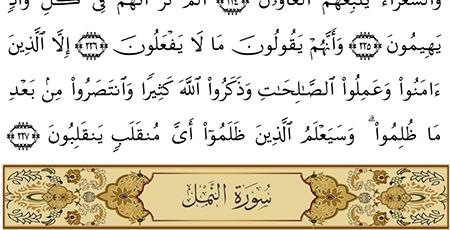 وَالشُّعَرَاءُ يَتَّبِعُهُمُ الْغَاوُۥنَ ﴿٢٢٤﴾ أَلَمْ تَرَ أَنَّهُمْ فِي كُلِّ وَادٍ
يَهِيمُونَ ﴿٢٢٥﴾ وَأَنَّهُمْ يَقُولُونَ مَا لَا يَفْعَلُونَ ﴿٢٢٦﴾ إِلَّا الَّذِينَ
ءَامَنُوا۟ وَعَمِلُوا۟ الصَّـٰلِحَـٰتِ وَذَكَرُوا۟ اللَّهَ كَثِيرًا وَانتَصَرُوا۟ مِنۢ بَعْدِ
مَا ظُلِمُوا۟ ۗ وَسَيَعْلَمُ الَّذِينَ ظَلَمُوٓا۟ أَىَّ مُنقَلَبٍ يَنقَلِبُونَ ﴿٢٢٧﴾
سُورَةُ النَّمْلِ